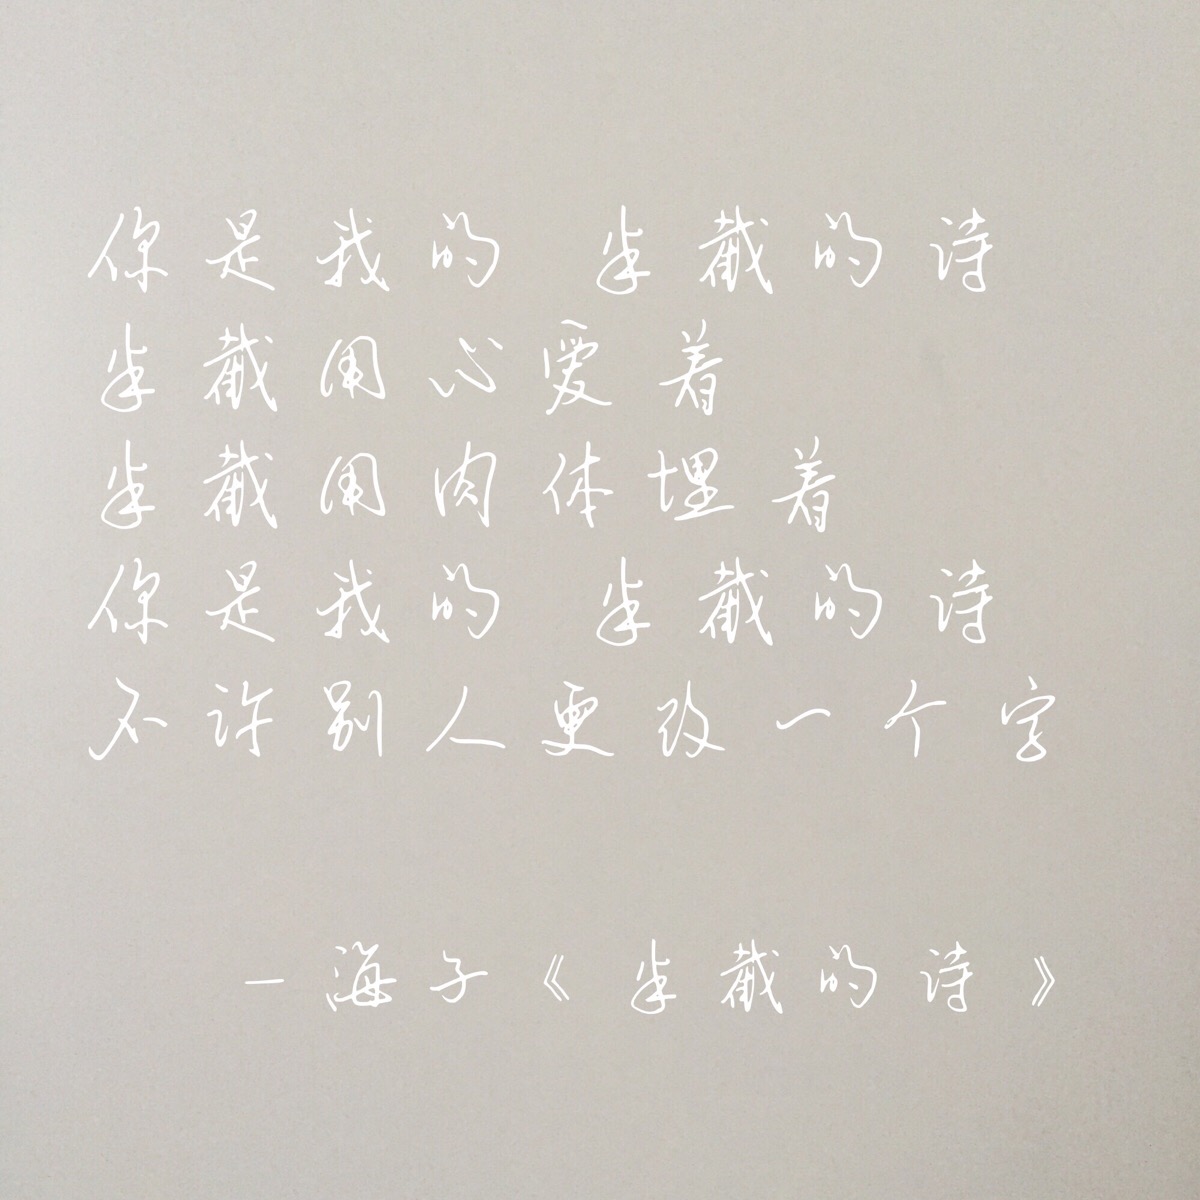 你是我的 半截的诗
半截用心爱着
半截用肉体埋着
你是我的 半截的诗
不许别人更改一个字
— 海子《半截的诗》